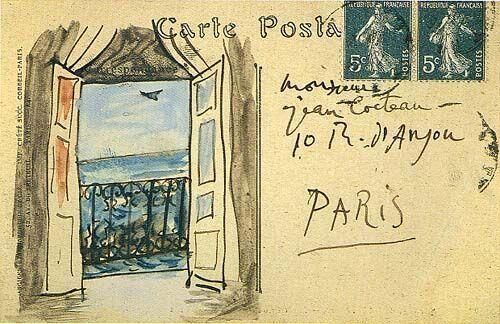 Carte Posta
REPUBLIQUE FRANÇAISE
REPUBLIQUE FRANÇAISE
5c POSTES
5c POSTES
Monsieur
Jean Cocteau
10 R. d'Anjou
PARIS
CORBEIL-PARIS.